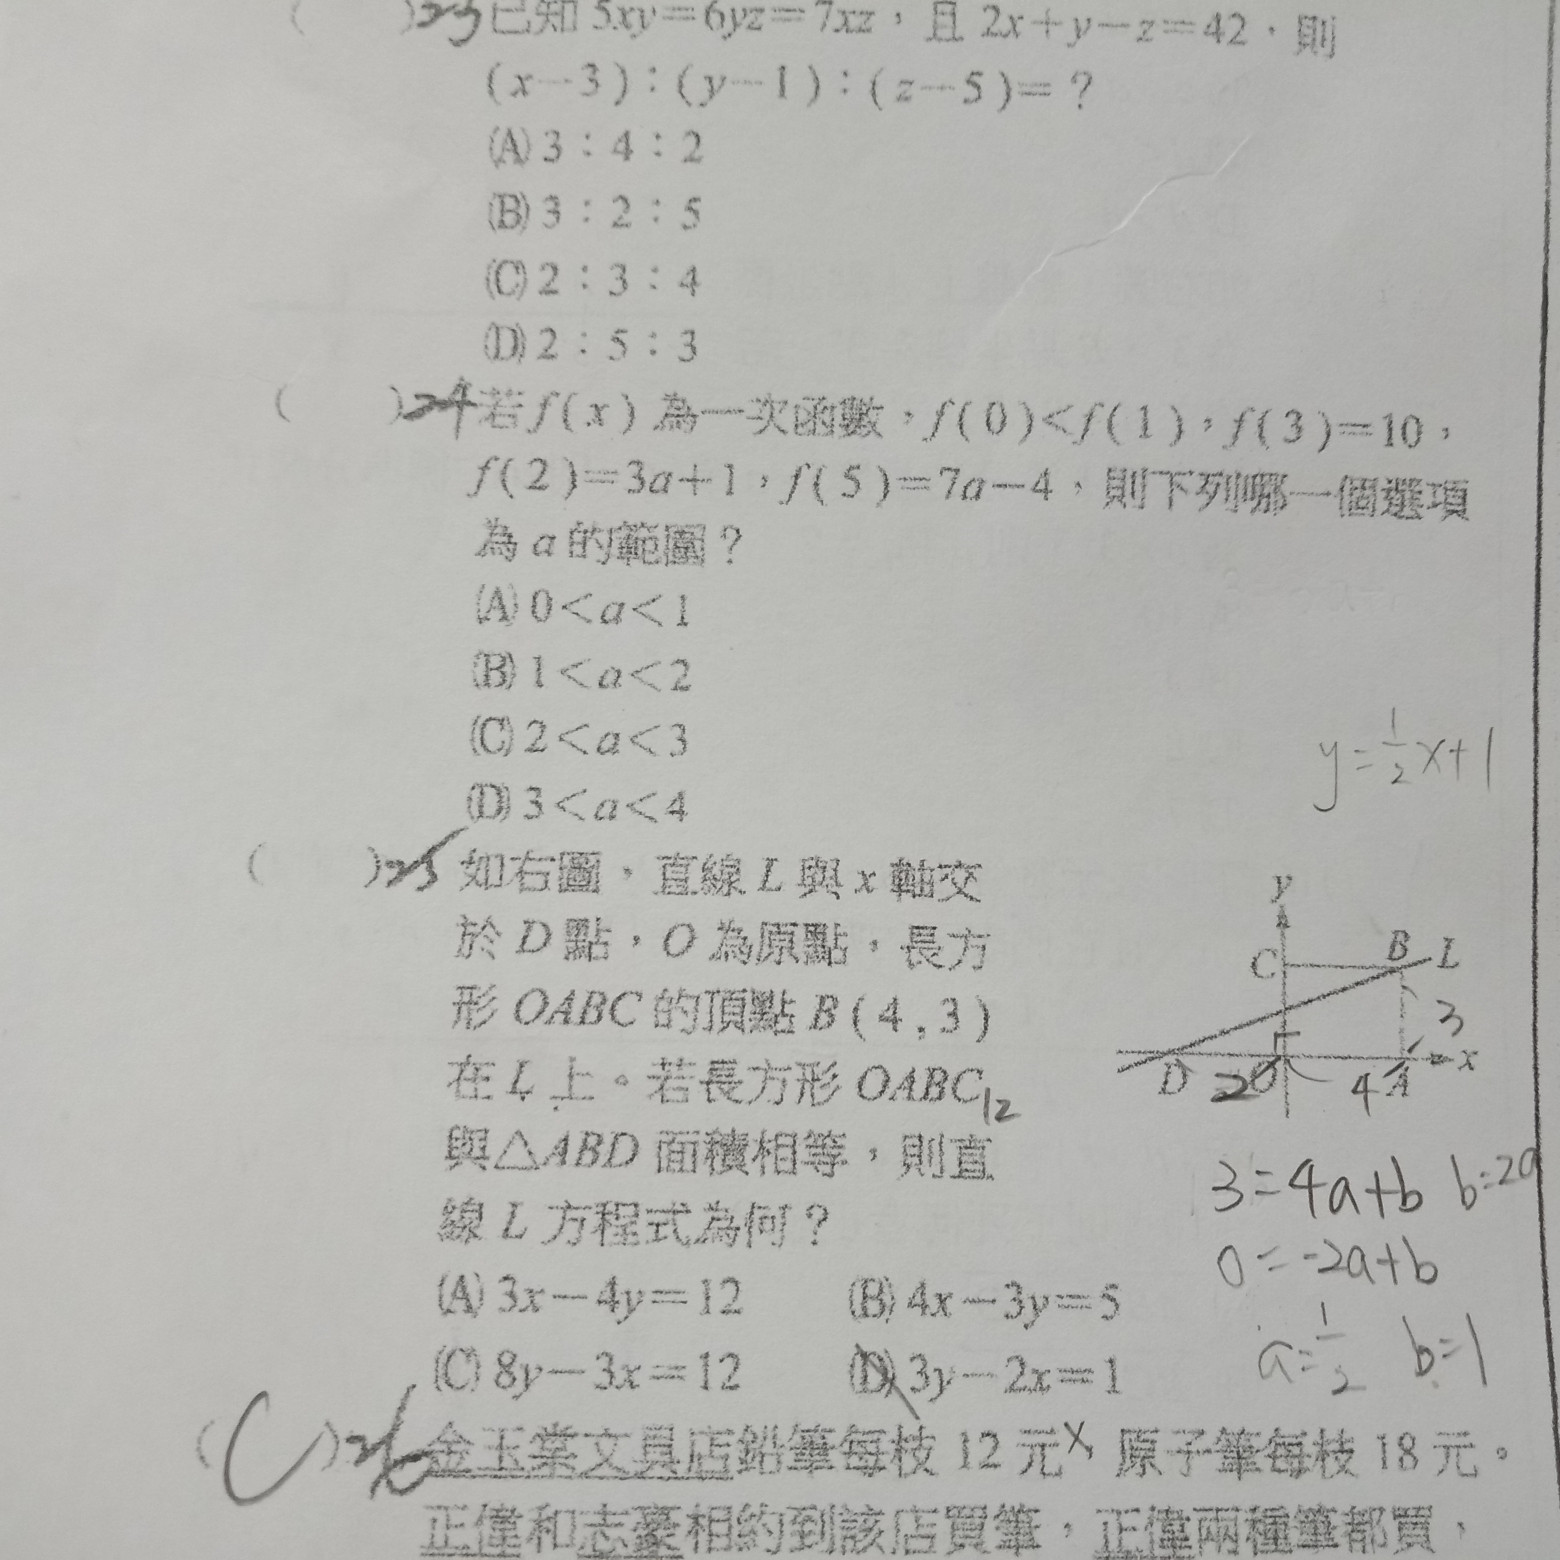 ( )23 已知 5xy=6yz=7xz，且 2x+y-z=42，則
(x-3)：(y-1)：(z-5)=？
(A) 3：4：2
(B) 3：2：5
(C) 2：3：4
(D) 2：5：3
( )24 若 f(x) 為一次函數，f(0)<f(1)，f(3)=10，
f(2)=3a+1，f(5)=7a-4，則下列哪一個選項
為 a 的範圍？
(A) 0<a<1
(B) 1<a<2
(C) 2<a<3
(D) 3<a<4
y=1/2x+1
( )25 如右圖，直線 L 與 x 軸交
於 D 點，O 為原點，長方
形 OABC 的頂點 B(4,3)
在 L 上。若長方形 OABC
12
與△ABD 面積相等，則直
線 L 方程式為何？
y
C B L
3
D 2 O 4 A x
3=4a+b b=2a
0=-2a+b
a=1/2 b=1
(A) 3x-4y=12 (B) 4x-3y=5
(C) 8y-3x=12 (D) 3y-2x=1
( C )26 金玉棠文具店鉛筆每枝 12 元，原子筆每枝 18 元。
x
正偉和志豪相約到該店買筆，正偉兩種筆都買，